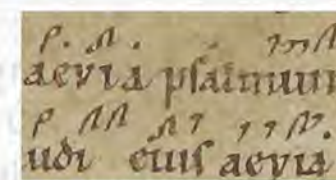 aevia psalmum
udi eius aevia